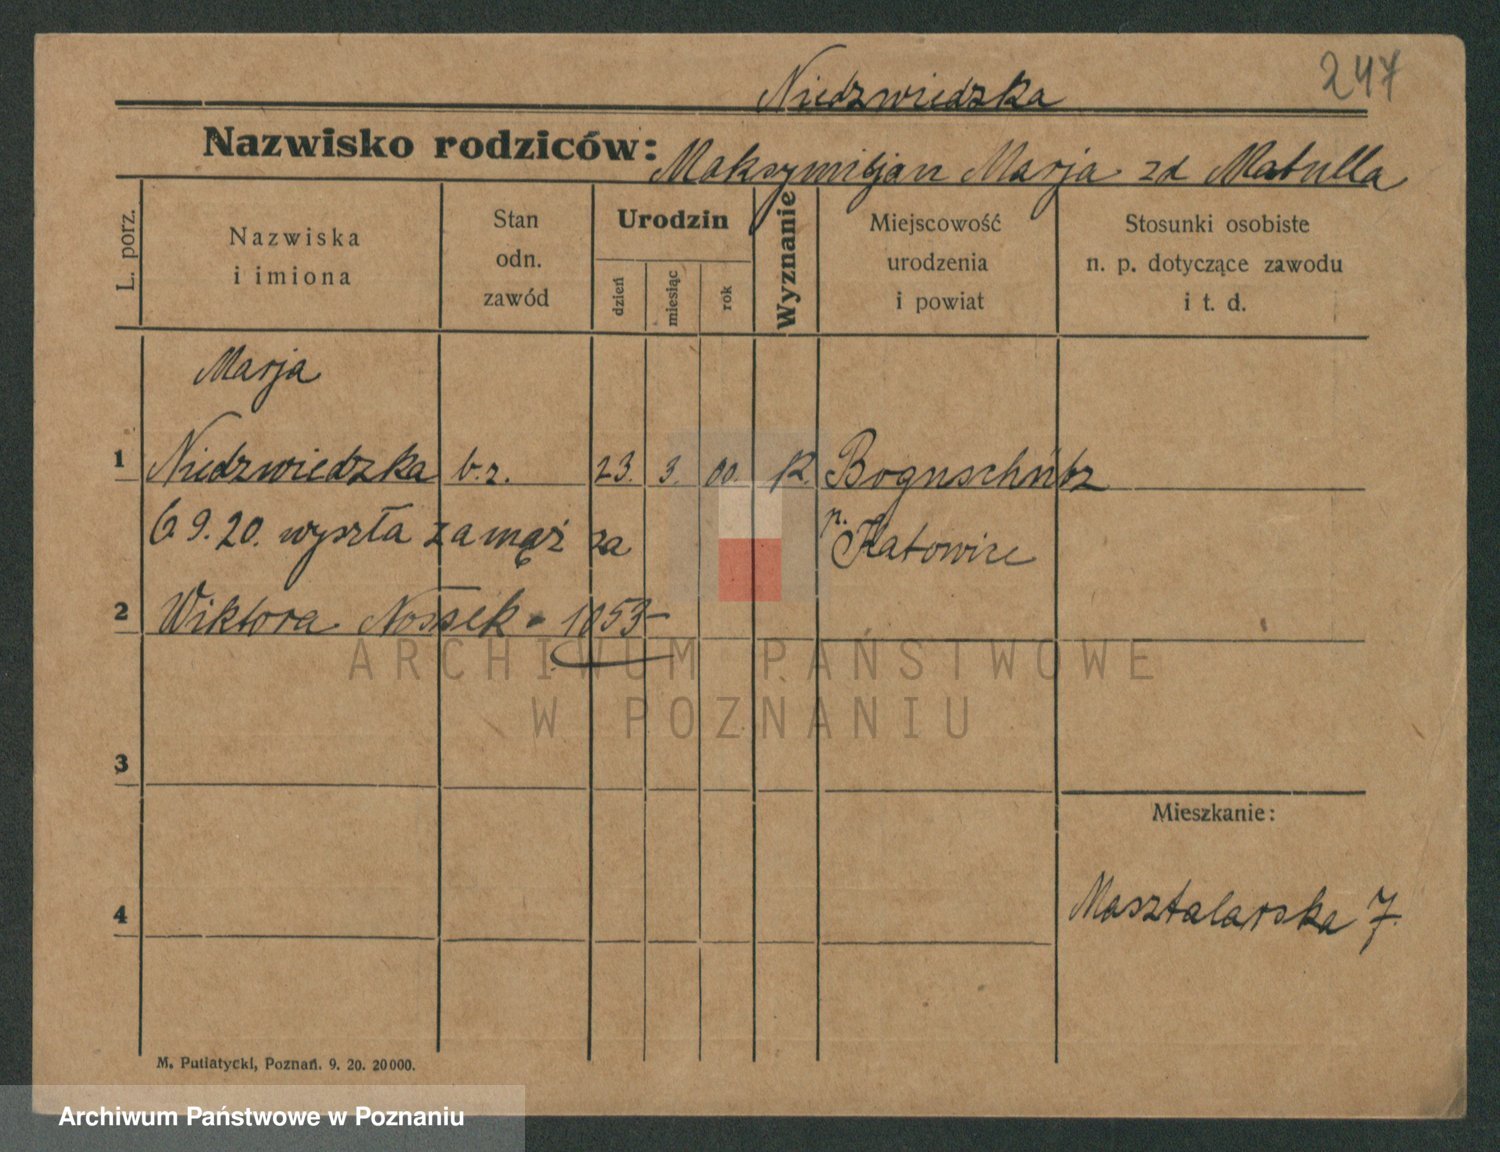 247
Niedzwiedzka
Nazwisko rodziców: Maksymiljan Marja zd Matulla
L. porz.
Nazwiska
i imiona
Stan
odn.
zawód
Urodzin
dzień
miesiąc
rok
Wyznanie
Miejscowość
urodzenia
i powiat
Stosunki osobiste
n. p. dotyczące zawodu
i t. d.
Marja
1 Niedzwiedzka b. z. 23. 3. 00. K. Boguschütz
6 9. 20. wyszła zamąż za p. Katowice
2 Wiktora Nossek - 1053 -
ARCHIWUM PAŃSTWOWE
W POZNANIU
3
Mieszkanie:
4 Masztalarska 7.
M. Putiatycki, Poznań. 9. 20. 20000.
Archiwum Państwowe w Poznaniu